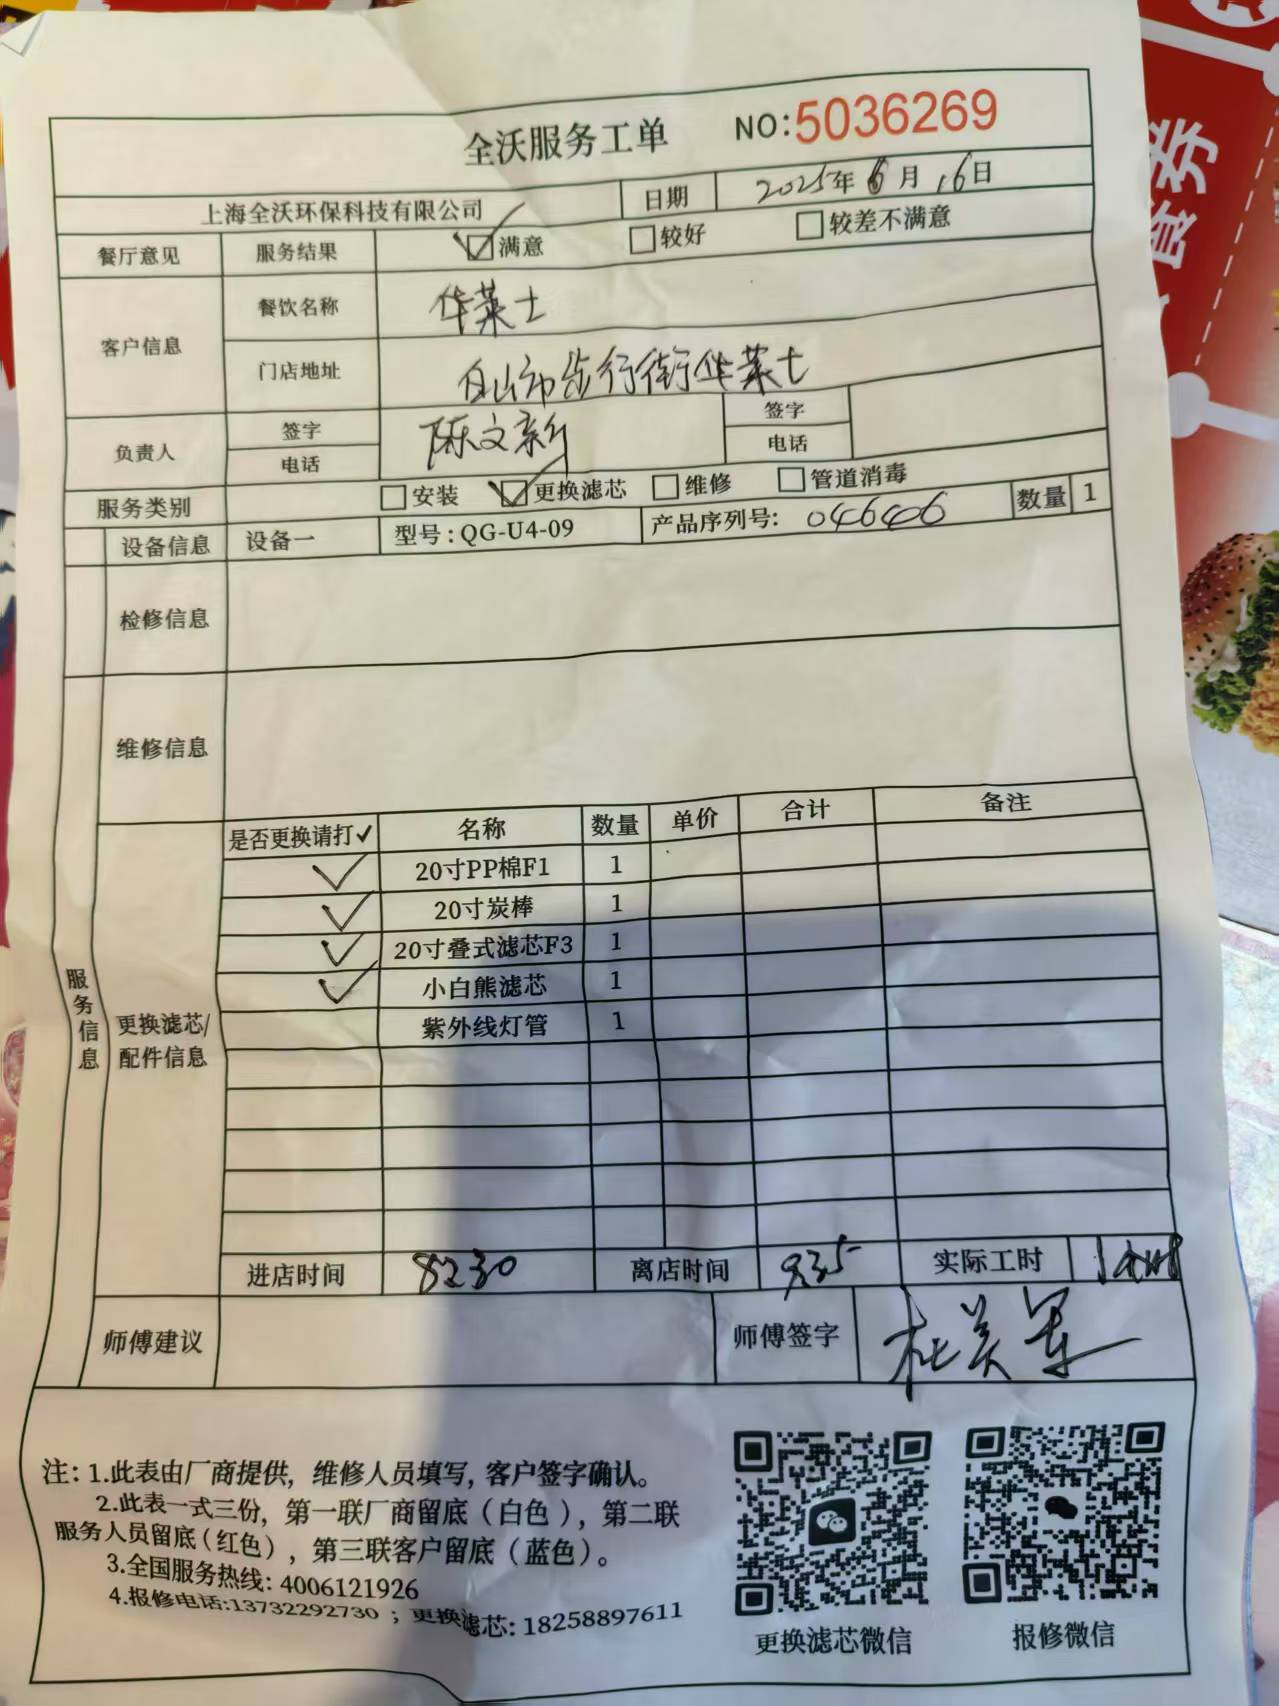 全沃服务工单 NO:5036269
上海全沃环保科技有限公司 日期 2025年6月16日
餐厅意见 服务结果 满意 较好 较差不满意
客户信息 餐饮名称 华莱士
门店地址 白山市步行街华莱士
负责人 签字 陈文新 签字
电话 电话
服务类别 安装 更换滤芯 维修 管道消毒
设备信息 设备一 型号:QG-U4-09 产品序列号: 046406 数量 1
检修信息
维修信息
服务信息
更换滤芯/配件信息
是否更换请打✓ 名称 数量 单价 合计 备注
✓ 20寸PP棉F1 1
✓ 20寸炭棒 1
✓ 20寸叠式滤芯F3 1
✓ 小白熊滤芯 1
紫外线灯管 1
进店时间 8:30 离店时间 935 实际工时
师傅建议 师傅签字 杜美军
注:1.此表由厂商提供,维修人员填写,客户签字确认。
2.此表一式三份,第一联厂商留底(白色),第二联
服务人员留底(红色),第三联客户留底(蓝色)。
3.全国服务热线:4006121926
4.报修电话:13732292730;更换滤芯:18258897611
更换滤芯微信 报修微信
食券